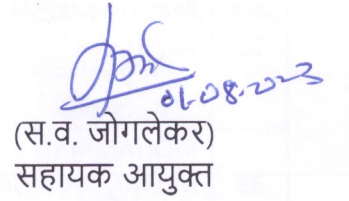 01-08-2023
(स.व. जोगलेकर)
सहायक आयुक्त